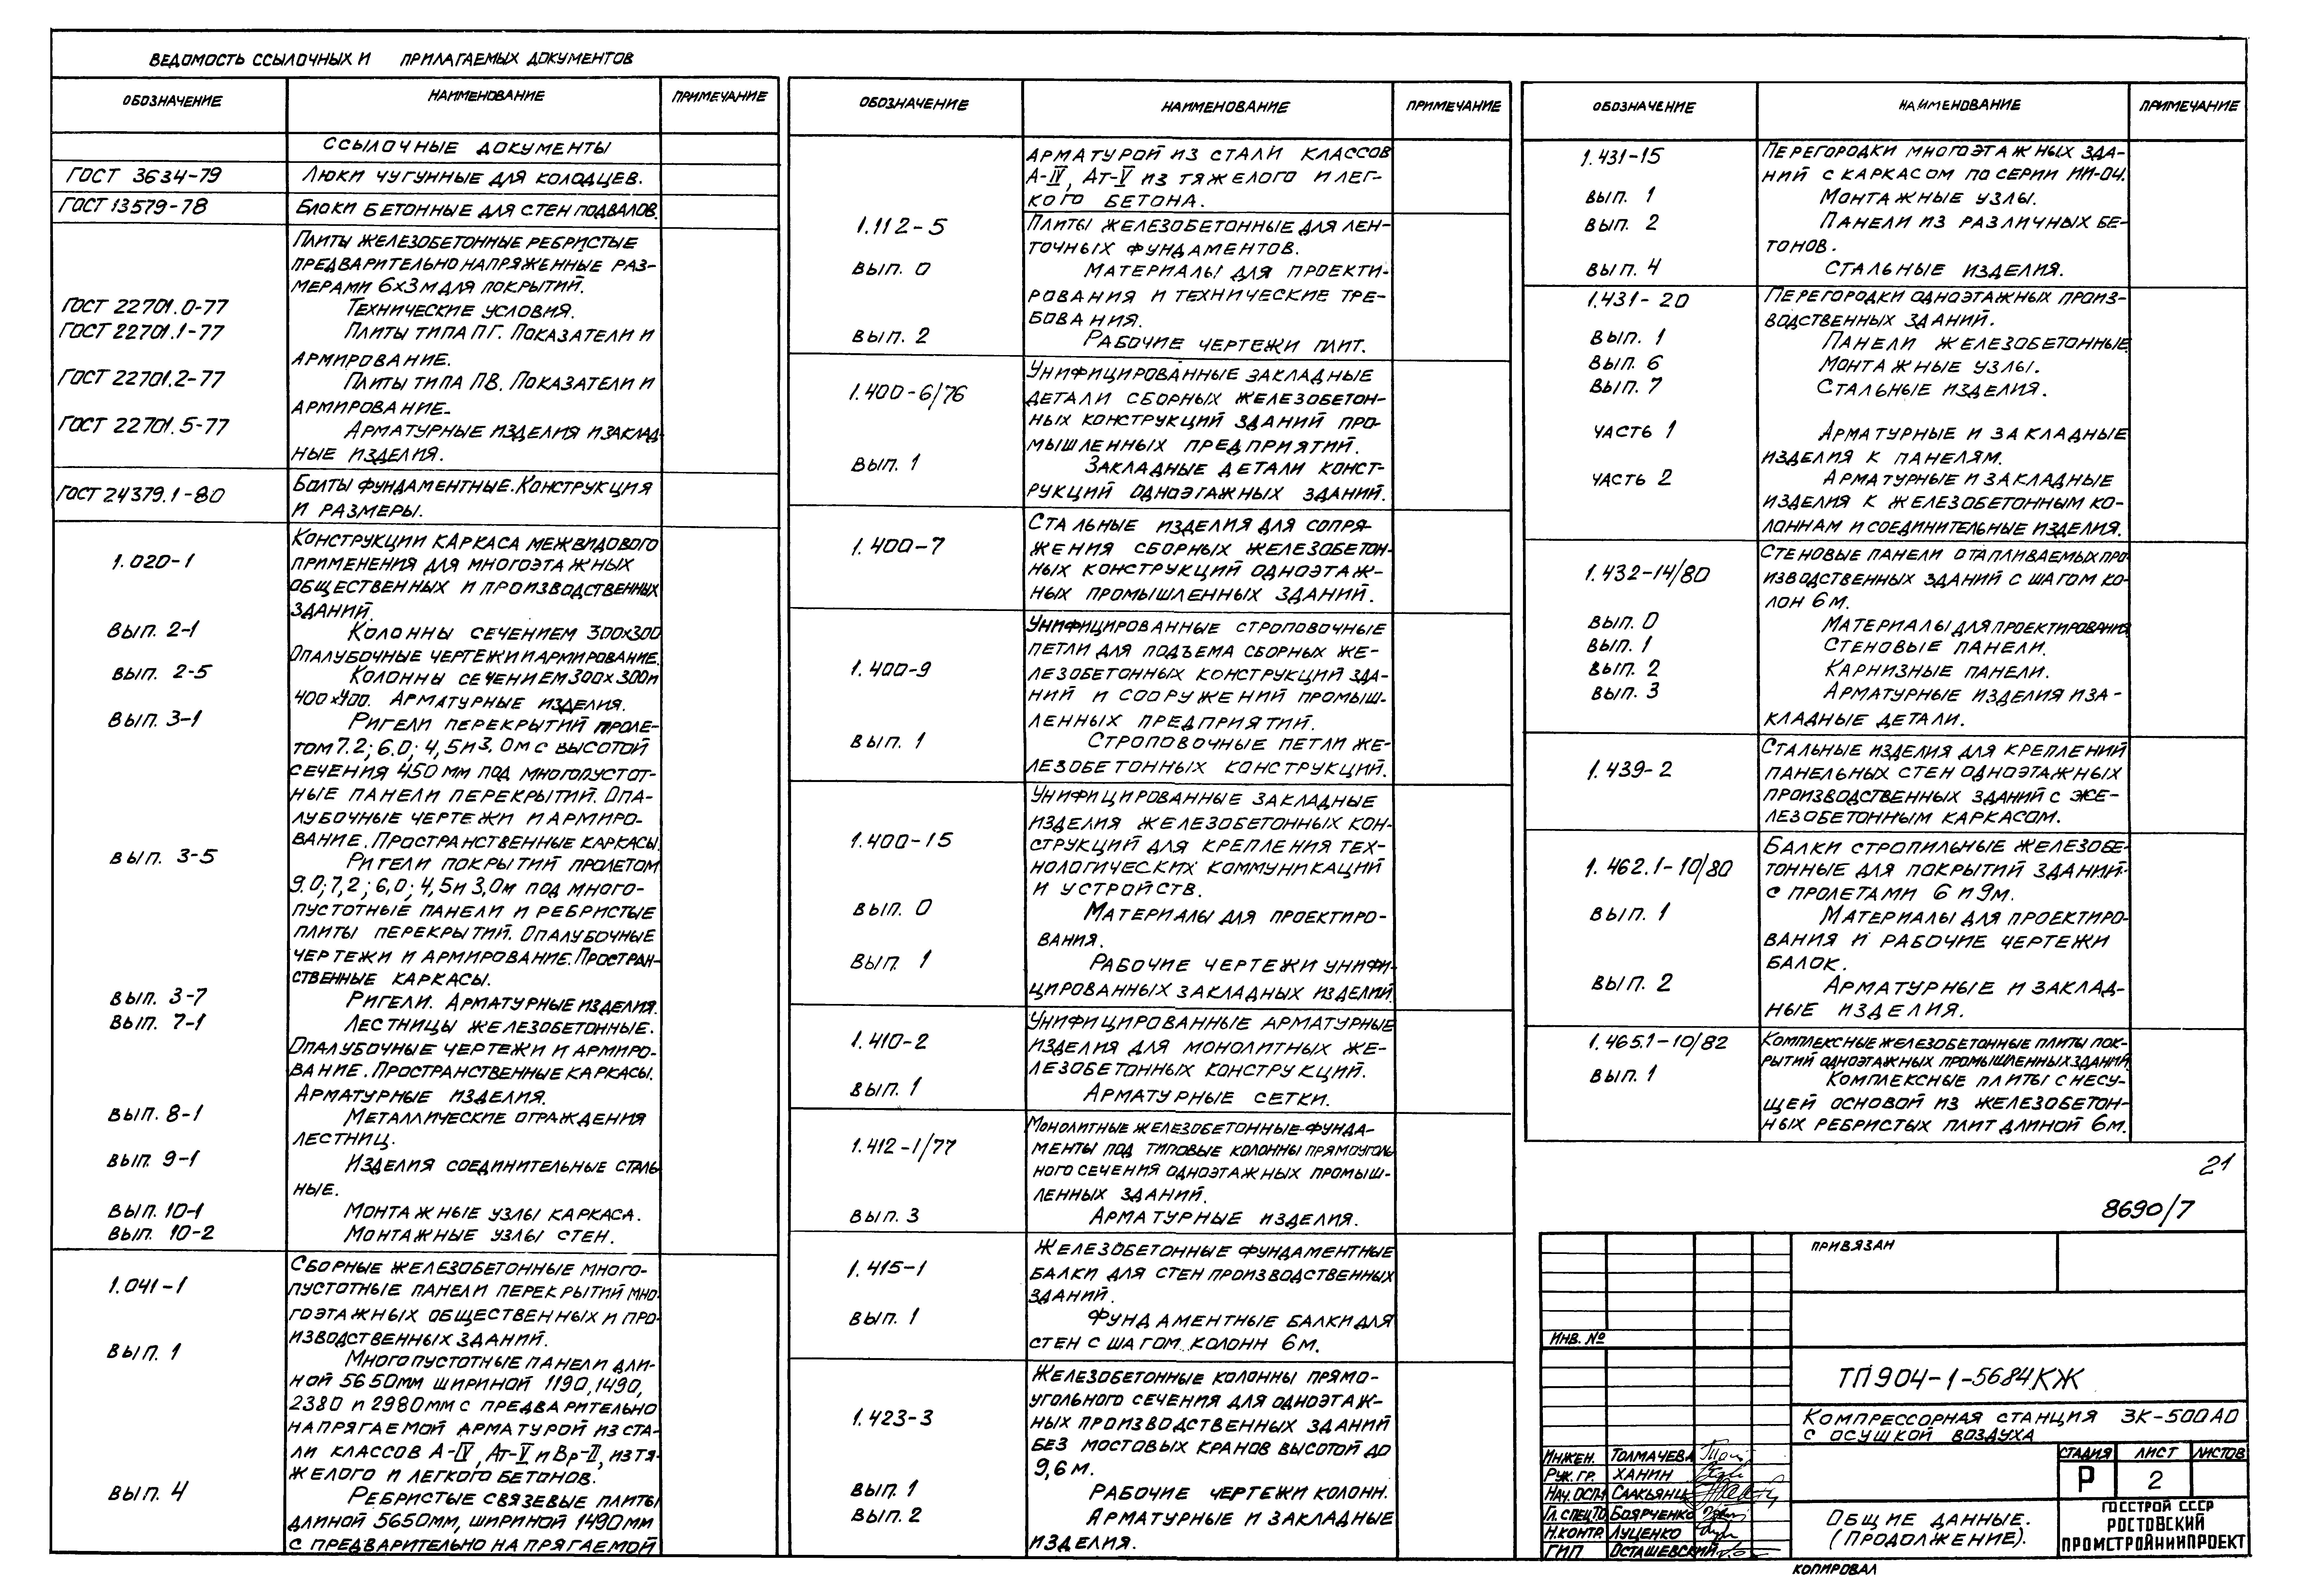 ВЕДОМОСТЬ ССЫЛОЧНЫХ И ПРИЛАГАЕМЫХ ДОКУМЕНТОВ
ОБОЗНАЧЕНИЕ НАИМЕНОВАНИЕ ПРИМЕЧАНИЕ
ССЫЛОЧНЫЕ ДОКУМЕНТЫ
ГОСТ 3634-79 ЛЮКИ ЧУГУННЫЕ ДЛЯ КОЛОДЦЕВ.
ГОСТ 13579-78 БЛОКИ БЕТОННЫЕ ДЛЯ СТЕН ПОДВАЛОВ.
ПЛИТЫ ЖЕЛЕЗОБЕТОННЫЕ РЕБРИСТЫЕ
ПРЕДВАРИТЕЛЬНО НАПРЯЖЕННЫЕ РАЗ-
МЕРАМИ 6х3м ДЛЯ ПОКРЫТИЙ.
ГОСТ 22701.0-77 ТЕХНИЧЕСКИЕ УСЛОВИЯ.
ГОСТ 22701.1-77 ПЛИТЫ ТИПА ПГ. ПОКАЗАТЕЛИ И
АРМИРОВАНИЕ.
ГОСТ 22701.2-77 ПЛИТЫ ТИПА ПВ. ПОКАЗАТЕЛИ И
АРМИРОВАНИЕ.
ГОСТ 22701.5-77 АРМАТУРНЫЕ ИЗДЕЛИЯ И ЗАКЛАД-
НЫЕ ИЗДЕЛИЯ.
ГОСТ 24379.1-80 БОЛТЫ ФУНДАМЕНТНЫЕ. КОНСТРУКЦИЯ
И РАЗМЕРЫ.
КОНСТРУКЦИИ КАРКАСА МЕЖВИДОВОГО
1.020-1 ПРИМЕНЕНИЯ ДЛЯ МНОГОЭТАЖНЫХ
ОБЩЕСТВЕННЫХ И ПРОИЗВОДСТВЕННЫХ
ЗДАНИЙ.
ВЫП. 2-1 КОЛОННЫ СЕЧЕНИЕМ 300х300
ОПАЛУБОЧНЫЕ ЧЕРТЕЖИ И АРМИРОВАНИЕ.
ВЫП. 2-5 КОЛОННЫ СЕЧЕНИЕМ 300х300 И
400х400. АРМАТУРНЫЕ ИЗДЕЛИЯ.
ВЫП. 3-1 РИГЕЛИ ПЕРЕКРЫТИЙ ПРОЛЕ-
ТОМ 7.2; 6.0; 4,5 И 3.0м С ВЫСОТОЙ
СЕЧЕНИЯ 450 мм ПОД МНОГОПУСТОТ-
НЫЕ ПАНЕЛИ ПЕРЕКРЫТИЙ. ОПА-
ЛУБОЧНЫЕ ЧЕРТЕЖИ И АРМИРО-
ВАНИЕ. ПРОСТРАНСТВЕННЫЕ КАРКАСЫ.
ВЫП. 3-5 РИГЕЛИ ПОКРЫТИЙ ПРОЛЕТОМ
9.0; 7,2; 6,0; 4,5 И 3,0м ПОД МНОГО-
ПУСТОТНЫЕ ПАНЕЛИ И РЕБРИСТЫЕ
ПЛИТЫ ПЕРЕКРЫТИЙ. ОПАЛУБОЧНЫЕ
ЧЕРТЕЖИ И АРМИРОВАНИЕ. ПРОСТРАН-
СТВЕННЫЕ КАРКАСЫ.
ВЫП. 3-7 РИГЕЛИ. АРМАТУРНЫЕ ИЗДЕЛИЯ.
ВЫП. 7-1 ЛЕСТНИЦЫ ЖЕЛЕЗОБЕТОННЫЕ.
ОПАЛУБОЧНЫЕ ЧЕРТЕЖИ И АРМИРО-
ВАНИЕ. ПРОСТРАНСТВЕННЫЕ КАРКАСЫ.
АРМАТУРНЫЕ ИЗДЕЛИЯ.
ВЫП. 8-1 МЕТАЛЛИЧЕСКИЕ ОГРАЖДЕНИЯ
ЛЕСТНИЦ.
ВЫП. 9-1 ИЗДЕЛИЯ СОЕДИНИТЕЛЬНЫЕ СТАЛЬ
НЫЕ.
ВЫП. 10-1 МОНТАЖНЫЕ УЗЛЫ КАРКАСА.
ВЫП. 10-2 МОНТАЖНЫЕ УЗЛЫ СТЕН.
СБОРНЫЕ ЖЕЛЕЗОБЕТОННЫЕ МНОГО-
1.041-1 ПУСТОТНЫЕ ПАНЕЛИ ПЕРЕКРЫТИЙ МНО-
ГОЭТАЖНЫХ ОБЩЕСТВЕННЫХ И ПРО-
ИЗВОДСТВЕННЫХ ЗДАНИЙ.
ВЫП. 1 МНОГОПУСТОТНЫЕ ПАНЕЛИ ДЛИ-
НОЙ 5650мм ШИРИНОЙ 1190, 1490,
2380 И 2980мм С ПРЕДВАРИТЕЛЬНО
НАПРЯГАЕМОЙ АРМАТУРОЙ ИЗ СТА-
ЛИ КЛАССОВ А-IV, Ат-V И Вр-II, ИЗ ТЯ-
ЖЕЛОГО И ЛЕГКОГО БЕТОНОВ.
ВЫП. 4 РЕБРИСТЫЕ СВЯЗЕВЫЕ ПЛИТЫ
ДЛИНОЙ 5650мм, ШИРИНОЙ 1490мм
С ПРЕДВАРИТЕЛЬНО НАПРЯГАЕМОЙ
ОБОЗНАЧЕНИЕ НАИМЕНОВАНИЕ ПРИМЕЧАНИЕ
АРМАТУРОЙ ИЗ СТАЛИ КЛАССОВ
А-IV, Ат-V ИЗ ТЯЖЕЛОГО И ЛЕГ-
КОГО БЕТОНА.
1.112-5 ПЛИТЫ ЖЕЛЕЗОБЕТОННЫЕ ДЛЯ ЛЕН-
ТОЧНЫХ ФУНДАМЕНТОВ.
ВЫП. 0 МАТЕРИАЛЫ ДЛЯ ПРОЕКТИ-
РОВАНИЯ И ТЕХНИЧЕСКИЕ ТРЕ-
БОВАНИЯ.
ВЫП. 2 РАБОЧИЕ ЧЕРТЕЖИ ПЛИТ.
УНИФИЦИРОВАННЫЕ ЗАКЛАДНЫЕ
1.400-6/76 ДЕТАЛИ СБОРНЫХ ЖЕЛЕЗОБЕТОН-
НЫХ КОНСТРУКЦИЙ ЗДАНИЙ ПРО-
МЫШЛЕННЫХ ПРЕДПРИЯТИЙ.
ВЫП. 1 ЗАКЛАДНЫЕ ДЕТАЛИ КОНСТ-
РУКЦИЙ ОДНОЭТАЖНЫХ ЗДАНИЙ.
СТАЛЬНЫЕ ИЗДЕЛИЯ ДЛЯ СОПРЯ-
1.400-7 ЖЕНИЯ СБОРНЫХ ЖЕЛЕЗОБЕТОН-
НЫХ КОНСТРУКЦИЙ ОДНОЭТАЖ-
НЫХ ПРОМЫШЛЕННЫХ ЗДАНИЙ.
УНИФИЦИРОВАННЫЕ СТРОПОВОЧНЫЕ
ПЕТЛИ ДЛЯ ПОДЪЕМА СБОРНЫХ ЖЕ-
1.400-9 ЛЕЗОБЕТОННЫХ КОНСТРУКЦИЙ ЗДА-
НИЙ И СООРУЖЕНИЙ ПРОМЫШ-
ЛЕННЫХ ПРЕДПРИЯТИЙ.
ВЫП. 1 СТРОПОВОЧНЫЕ ПЕТЛИ ЖЕ-
ЛЕЗОБЕТОННЫХ КОНСТРУКЦИЙ.
УНИФИЦИРОВАННЫЕ ЗАКЛАДНЫЕ
ИЗДЕЛИЯ ЖЕЛЕЗОБЕТОННЫХ КОН-
1.400-15 СТРУКЦИЙ ДЛЯ КРЕПЛЕНИЯ ТЕХ-
НОЛОГИЧЕСКИХ КОММУНИКАЦИЙ
И УСТРОЙСТВ.
ВЫП. 0 МАТЕРИАЛЫ ДЛЯ ПРОЕКТИРО-
ВАНИЯ.
ВЫП. 1 РАБОЧИЕ ЧЕРТЕЖИ УНИФИ-
ЦИРОВАННЫХ ЗАКЛАДНЫХ ИЗДЕЛИЙ.
УНИФИЦИРОВАННЫЕ АРМАТУРНЫЕ
1.410-2 ИЗДЕЛИЯ ДЛЯ МОНОЛИТНЫХ ЖЕ-
ЛЕЗОБЕТОННЫХ КОНСТРУКЦИЙ.
ВЫП. 1 АРМАТУРНЫЕ СЕТКИ.
МОНОЛИТНЫЕ ЖЕЛЕЗОБЕТОННЫЕ ФУНДА-
1.412-1/77 МЕНТЫ ПОД ТИПОВЫЕ КОЛОННЫ ПРЯМОУГОЛЬ
НОГО СЕЧЕНИЯ ОДНОЭТАЖНЫХ ПРОМЫШ-
ЛЕННЫХ ЗДАНИЙ.
ВЫП. 3 АРМАТУРНЫЕ ИЗДЕЛИЯ.
ЖЕЛЕЗОБЕТОННЫЕ ФУНДАМЕНТНЫЕ
1.415-1 БАЛКИ ДЛЯ СТЕН ПРОИЗВОДСТВЕННЫХ
ЗДАНИЙ.
ВЫП. 1 ФУНДАМЕНТНЫЕ БАЛКИ ДЛЯ
СТЕН С ШАГОМ КОЛОНН 6м.
ЖЕЛЕЗОБЕТОННЫЕ КОЛОННЫ ПРЯМО-
УГОЛЬНОГО СЕЧЕНИЯ ДЛЯ ОДНОЭТАЖ-
1.423-3 НЫХ ПРОИЗВОДСТВЕННЫХ ЗДАНИЙ
БЕЗ МОСТОВЫХ КРАНОВ ВЫСОТОЙ ДО
9,6м.
ВЫП. 1 РАБОЧИЕ ЧЕРТЕЖИ КОЛОНН.
ВЫП. 2 АРМАТУРНЫЕ И ЗАКЛАДНЫЕ
ИЗДЕЛИЯ.
ОБОЗНАЧЕНИЕ НАИМЕНОВАНИЕ ПРИМЕЧАНИЕ
1.431-15 ПЕРЕГОРОДКИ МНОГОЭТАЖНЫХ ЗДА-
НИЙ С КАРКАСОМ ПО СЕРИИ ИИ-04.
ВЫП. 1 МОНТАЖНЫЕ УЗЛЫ.
ВЫП. 2 ПАНЕЛИ ИЗ РАЗЛИЧНЫХ БЕ-
ТОНОВ.
ВЫП. 4 СТАЛЬНЫЕ ИЗДЕЛИЯ.
1.431-20 ПЕРЕГОРОДКИ ОДНОЭТАЖНЫХ ПРОИЗ-
ВОДСТВЕННЫХ ЗДАНИЙ.
ВЫП. 1 ПАНЕЛИ ЖЕЛЕЗОБЕТОННЫЕ
ВЫП. 6 МОНТАЖНЫЕ УЗЛЫ.
ВЫП. 7 СТАЛЬНЫЕ ИЗДЕЛИЯ.
ЧАСТЬ 1 АРМАТУРНЫЕ И ЗАКЛАДНЫЕ
ИЗДЕЛИЯ К ПАНЕЛЯМ.
ЧАСТЬ 2 АРМАТУРНЫЕ И ЗАКЛАДНЫЕ
ИЗДЕЛИЯ К ЖЕЛЕЗОБЕТОННЫМ КО-
ЛОННАМ И СОЕДИНИТЕЛЬНЫЕ ИЗДЕЛИЯ.
СТЕНОВЫЕ ПАНЕЛИ ОТАПЛИВАЕМЫХ ПРО
1.432-14/80 ИЗВОДСТВЕННЫХ ЗДАНИЙ С ШАГОМ КО-
ЛОН 6м.
ВЫП. 0 МАТЕРИАЛЫ ДЛЯ ПРОЕКТИРОВАНИЯ
ВЫП. 1 СТЕНОВЫЕ ПАНЕЛИ.
ВЫП. 2 КАРНИЗНЫЕ ПАНЕЛИ.
ВЫП. 3 АРМАТУРНЫЕ ИЗДЕЛИЯ И ЗА-
КЛАДНЫЕ ДЕТАЛИ.
СТАЛЬНЫЕ ИЗДЕЛИЯ ДЛЯ КРЕПЛЕНИЙ
1.439-2 ПАНЕЛЬНЫХ СТЕН ОДНОЭТАЖНЫХ
ПРОИЗВОДСТВЕННЫХ ЗДАНИЙ С ЖЕ-
ЛЕЗОБЕТОННЫМ КАРКАСОМ.
БАЛКИ СТРОПИЛЬНЫЕ ЖЕЛЕЗОБЕ-
1.462.1-10/80 ТОННЫЕ ДЛЯ ПОКРЫТИЙ ЗДАНИЙ
С ПРОЛЕТАМИ 6 И 9м.
ВЫП. 1 МАТЕРИАЛЫ ДЛЯ ПРОЕКТИРО-
ВАНИЯ И РАБОЧИЕ ЧЕРТЕЖИ
БАЛОК.
ВЫП. 2 АРМАТУРНЫЕ И ЗАКЛАД-
НЫЕ ИЗДЕЛИЯ.
1.465.1-10/82 КОМПЛЕКСНЫЕ ЖЕЛЕЗОБЕТОННЫЕ ПЛИТЫ ПОК-
РЫТИЙ ОДНОЭТАЖНЫХ ПРОМЫШЛЕННЫХ ЗДАНИЙ
ВЫП. 1 КОМПЛЕКСНЫЕ ПЛИТЫ С НЕСУ-
ЩЕЙ ОСНОВОЙ ИЗ ЖЕЛЕЗОБЕТОН-
НЫХ РЕБРИСТЫХ ПЛИТ ДЛИНОЙ 6м.
21
8690/7
ПРИВЯЗАН
ИНВ. №
ТП 904-1-5684 КЖ
КОМПРЕССОРНАЯ СТАНЦИЯ 3К-500АО
С ОСУШКОЙ ВОЗДУХА
ИНЖЕН. ТОЛМАЧЕВА
РУК. ГР. ХАНИН
НАЧ. ОСП-1 СААКЬЯНЦ
ГЛ. СПЕЦ ТО БОЯРЧЕНКО
Н.КОНТР. ЛУЦЕНКО
ГИП ОСТАШЕВСКИЙ
СТАДИЯ ЛИСТ ЛИСТОВ
Р 2
ОБЩИЕ ДАННЫЕ.
(ПРОДОЛЖЕНИЕ).
ГОССТРОЙ СССР
РОСТОВСКИЙ
ПРОМСТРОЙНИИПРОЕКТ
КОПИРОВАЛ